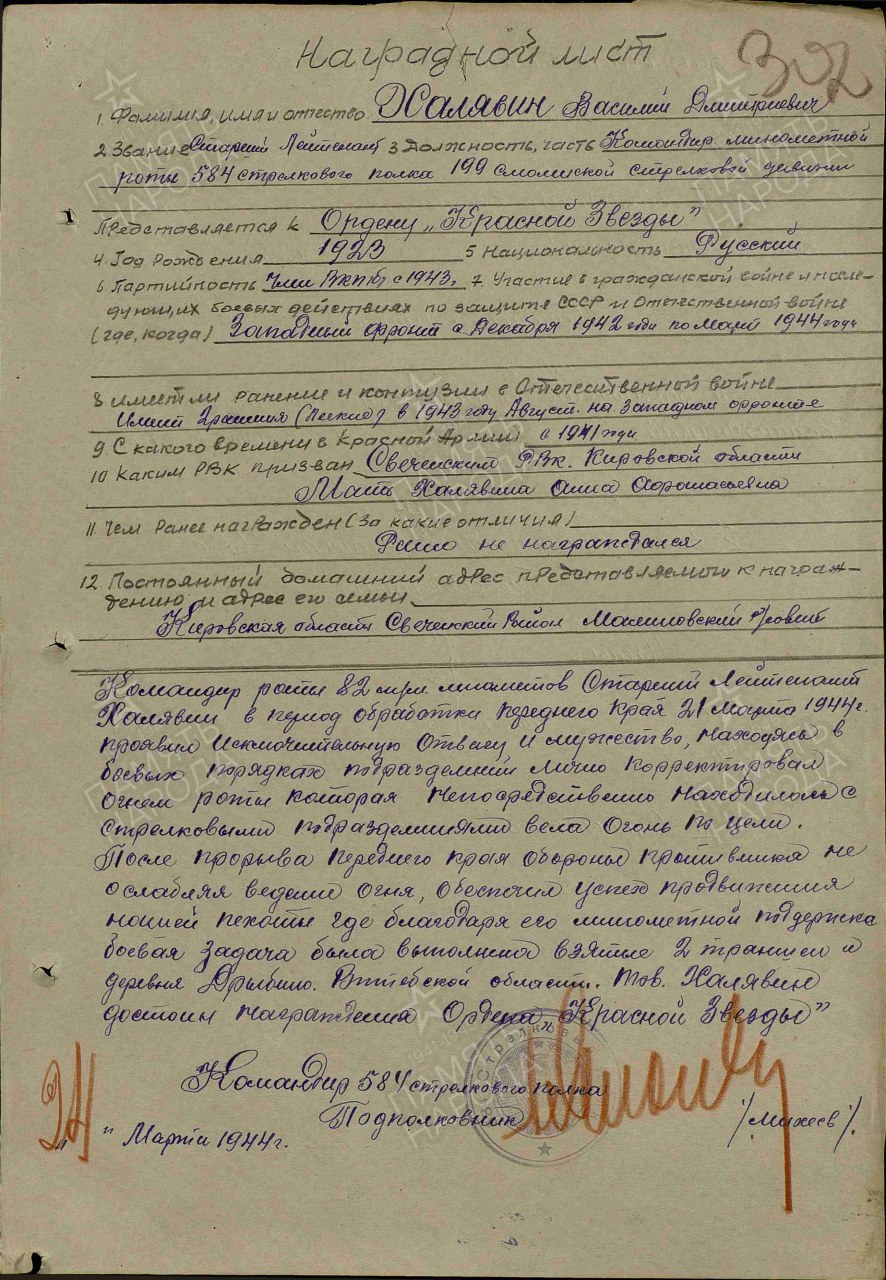 Наградной лист
302
1. Фамилия, имя и отчество Халявин Василий Дмитриевич
2 Звание Старший Лейтенант 3 Должность, часть Командир минометной
роты 584 стрелкового полка 199 Смоленской стрелковой дивизии
Представляется к Ордену „Красной Звезды"
4. Год рождения 1923 5 Национальность Русский
6. Партийность Член ВКП(б) с 1943г. 7. Участие в гражданской войне и после-
дующих боевых действиях по защите СССР и Отечественной войне
(где, когда) Западный фронт с Декабря 1942 года по Март 1944 года
8 имеет ли ранение и контузии в Отечественной войне
Имеет 2 ранения (Легкие) в 1943 году Август. на Западном фронте
9. С какого времени в Красной Армии с 1941 года
10 Каким РВК призван Свеченским РВК. Кировской области
Мать Халявина Анна Афонасьевна
11. Чем ранее награжден (за какие отличия)
Ранее не награждался
12. Постоянный домашний адрес представляемого к награж-
дению и адрес его семьи
Кировская область Свеченский Район с/совет
Командир роты 82 м/м. минометов Старший Лейтенант
Халявин в период обработки переднего края 21 Марта 1944г.
проявил Исключительную Отвагу и мужество, находясь в
боевых порядках подразделений лично корректировал
Огнем роты которая непосредственно находилась с
стрелковыми подразделениями вела Огонь по цели.
После прорыва переднего края обороны противника не
ослабляя ведение огня, обеспечил успех продвижения
нашей пехоты где благодаря его минометной поддержка
боевая задача была выполнена взятые 2 траншеи и
деревня Дрыбино. Витебской области. Тов. Халявин
достоин награждения Ордена „Красной Звезды"
Командир 584 стрелкового полка
Подполковник /Михеев/.
„24" Марта 1944г.